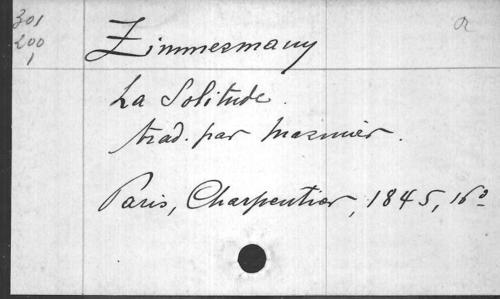 301
200
1
Zimmermann
a
La Solitude.
trad. par Marmier.
Paris, Charpentier, 1845, 16º